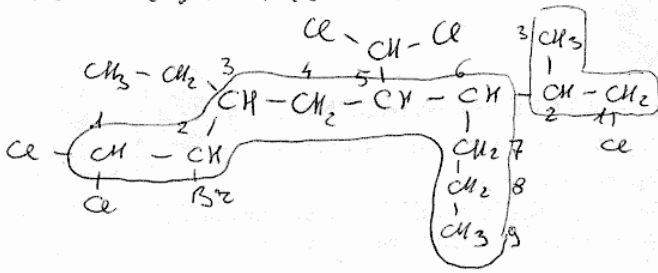 Cl CH - Cl 3 CH3
CH3 - CH2 3 4 5 6
CH - CH2 - CH - CH - CH - CH2
1 2 2 1
Cl - CH - CH CH2 7 Cl
Cl Br CH2 8
CH3 9